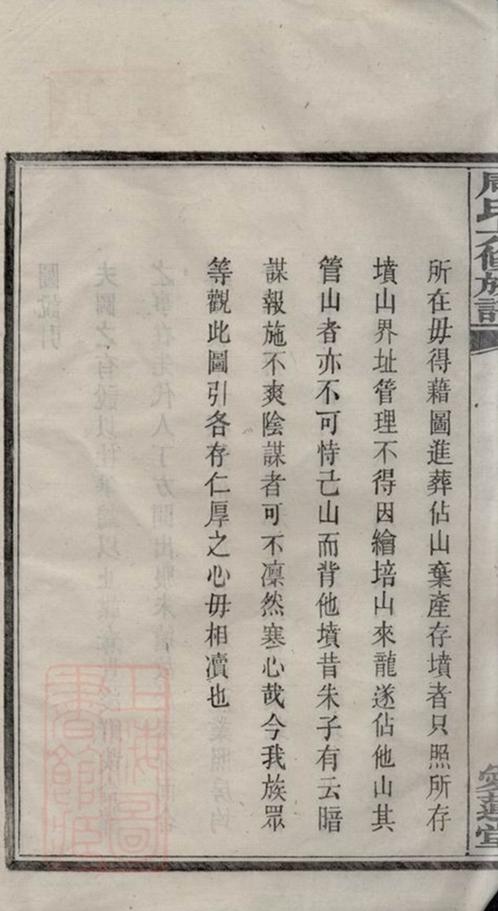 周氏六修族譜
所在毋得藉圖進葬佔山棄產存墳者只照所存
墳山界址管理不得因繪培山來龍遂佔他山其
管山者亦不可恃己山而背他墳昔朱子有云暗
謀報施不爽陰謀者可不凛然寒心哉今我族眾
等觀此圖引各存仁厚之心毋相瀆也
愛蓮堂